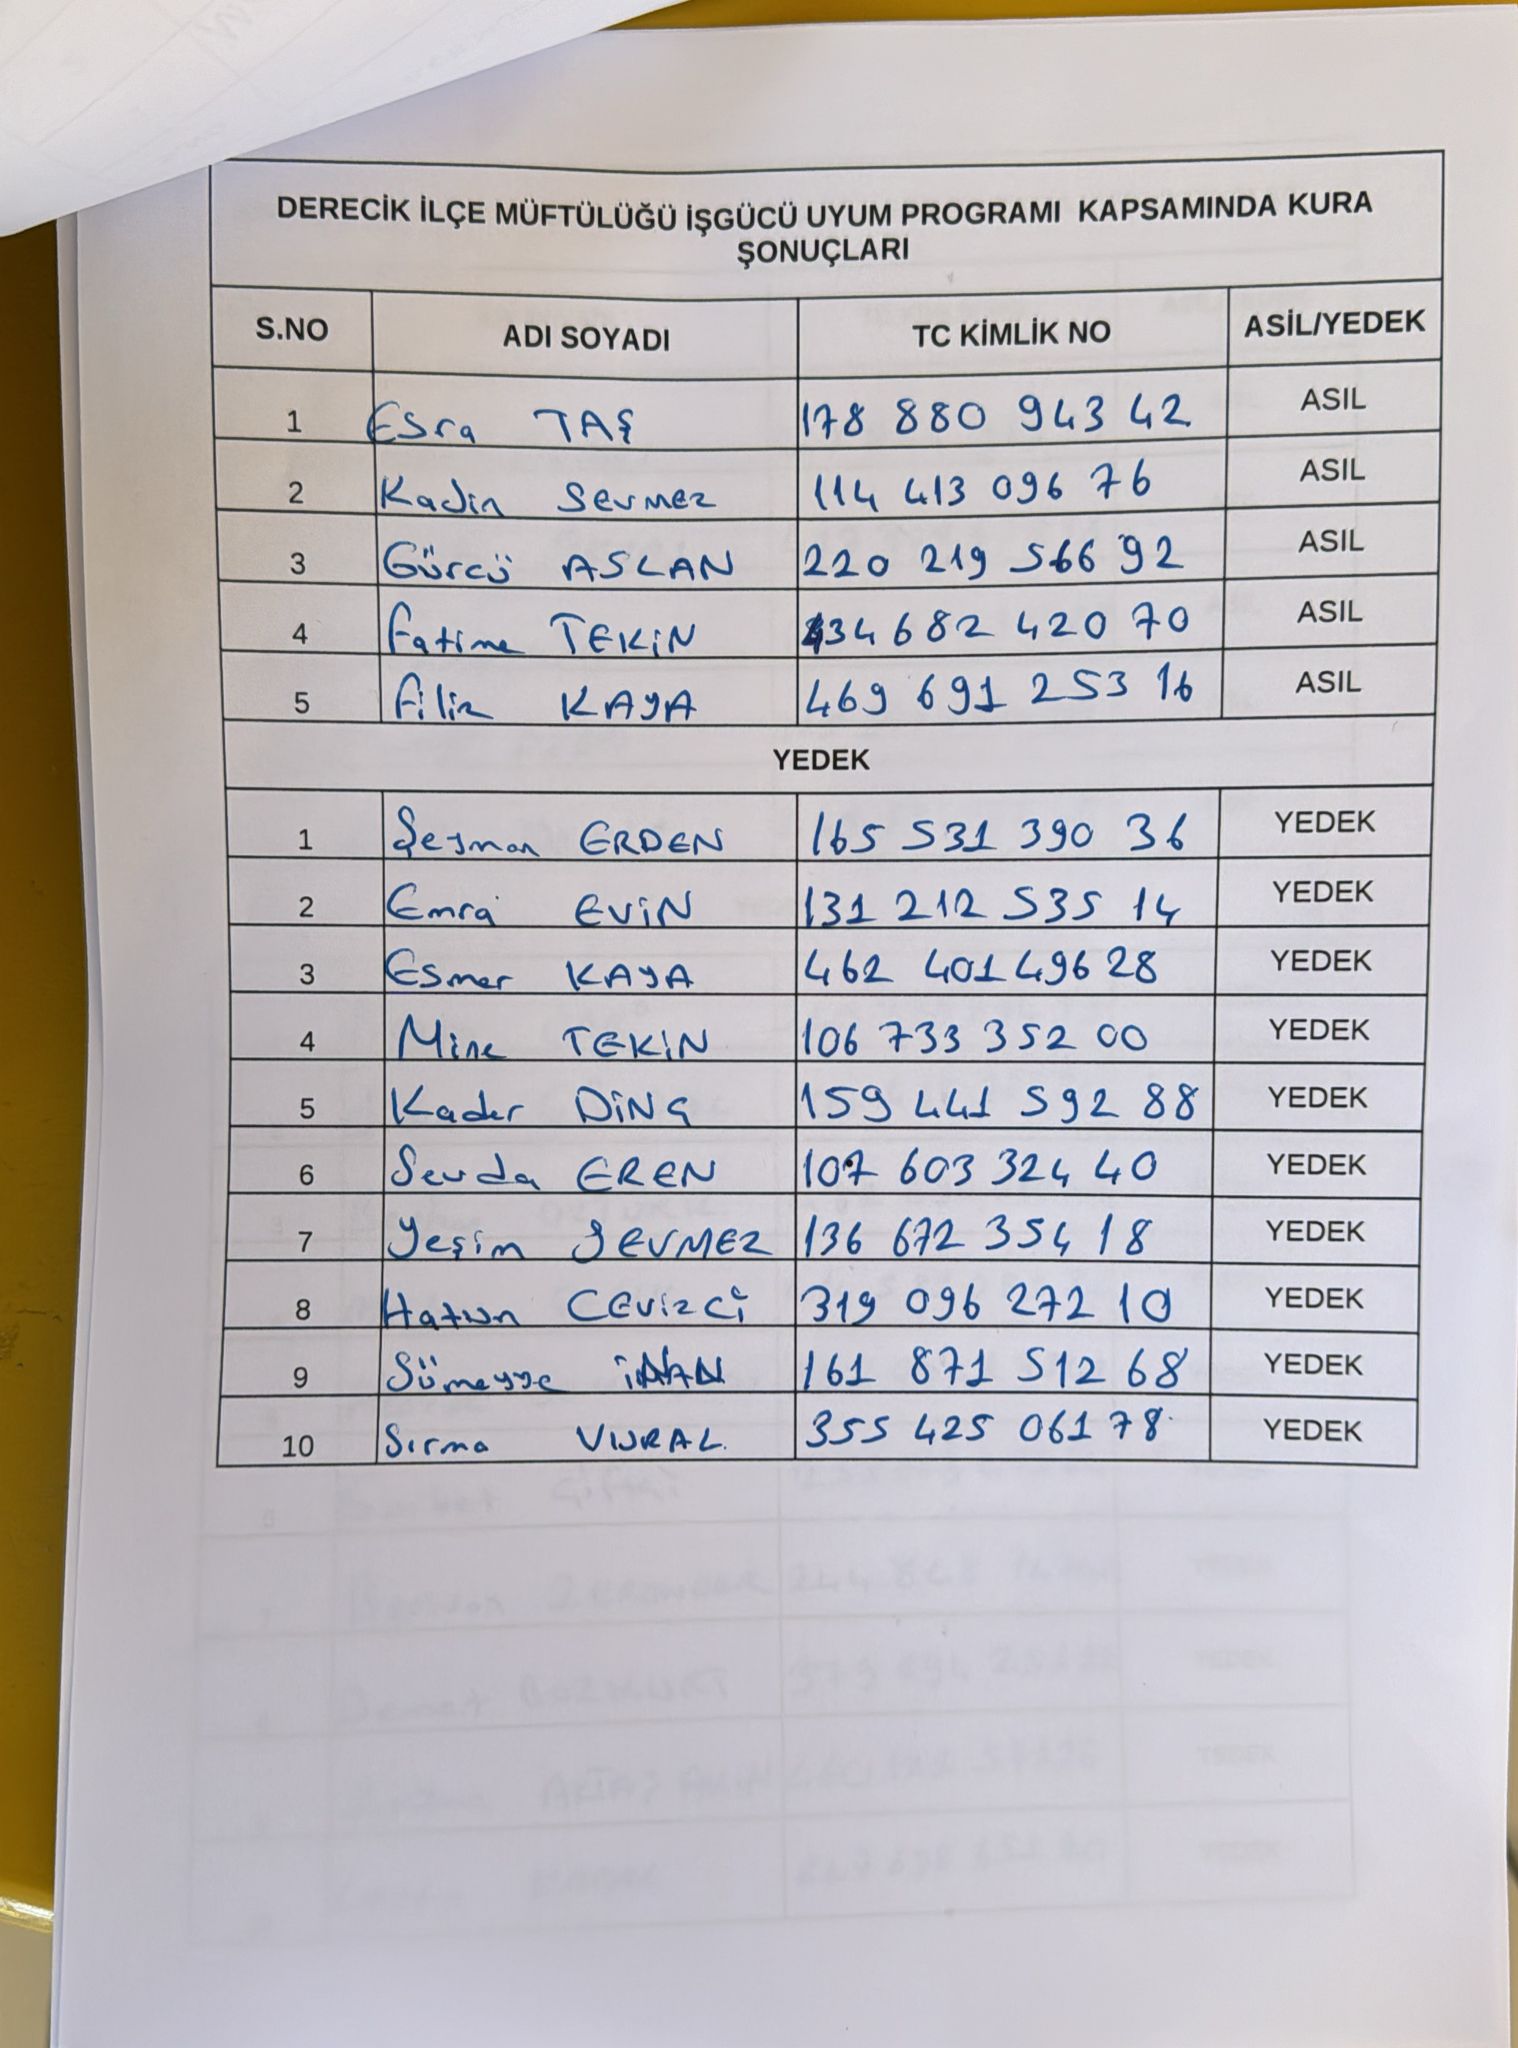 DERECİK İLÇE MÜFTÜLÜĞÜ İŞGÜCÜ UYUM PROGRAMI KAPSAMINDA KURA
ŞONUÇLARI
S.NO ADI SOYADI TC KİMLİK NO ASİL/YEDEK
1 Esra TAŞ 178 880 943 42 ASIL
2 Kadin Sevmez 114 413 096 76 ASIL
3 Gürcü ASLAN 220 219 566 92 ASIL
4 Fatime TEKİN 34 682 420 70 ASIL
5 Filiz KAYA 469 691 253 16 ASIL
YEDEK
1 Şeyman ERDEN 165 531 390 36 YEDEK
2 Emra EVİN 131 212 535 14 YEDEK
3 Esmer KAYA 462 401 496 28 YEDEK
4 Mine TEKİN 106 733 352 00 YEDEK
5 Kader DİNÇ 159 441 592 88 YEDEK
6 Sevda EREN 107 603 324 40 YEDEK
7 Yeşim SEVMEZ 136 672 354 18 YEDEK
8 Hatun CEVİZCİ 319 096 272 10 YEDEK
9 Sümeyye 161 871 512 68 YEDEK
10 Sırma VURAL 355 425 061 78 YEDEK